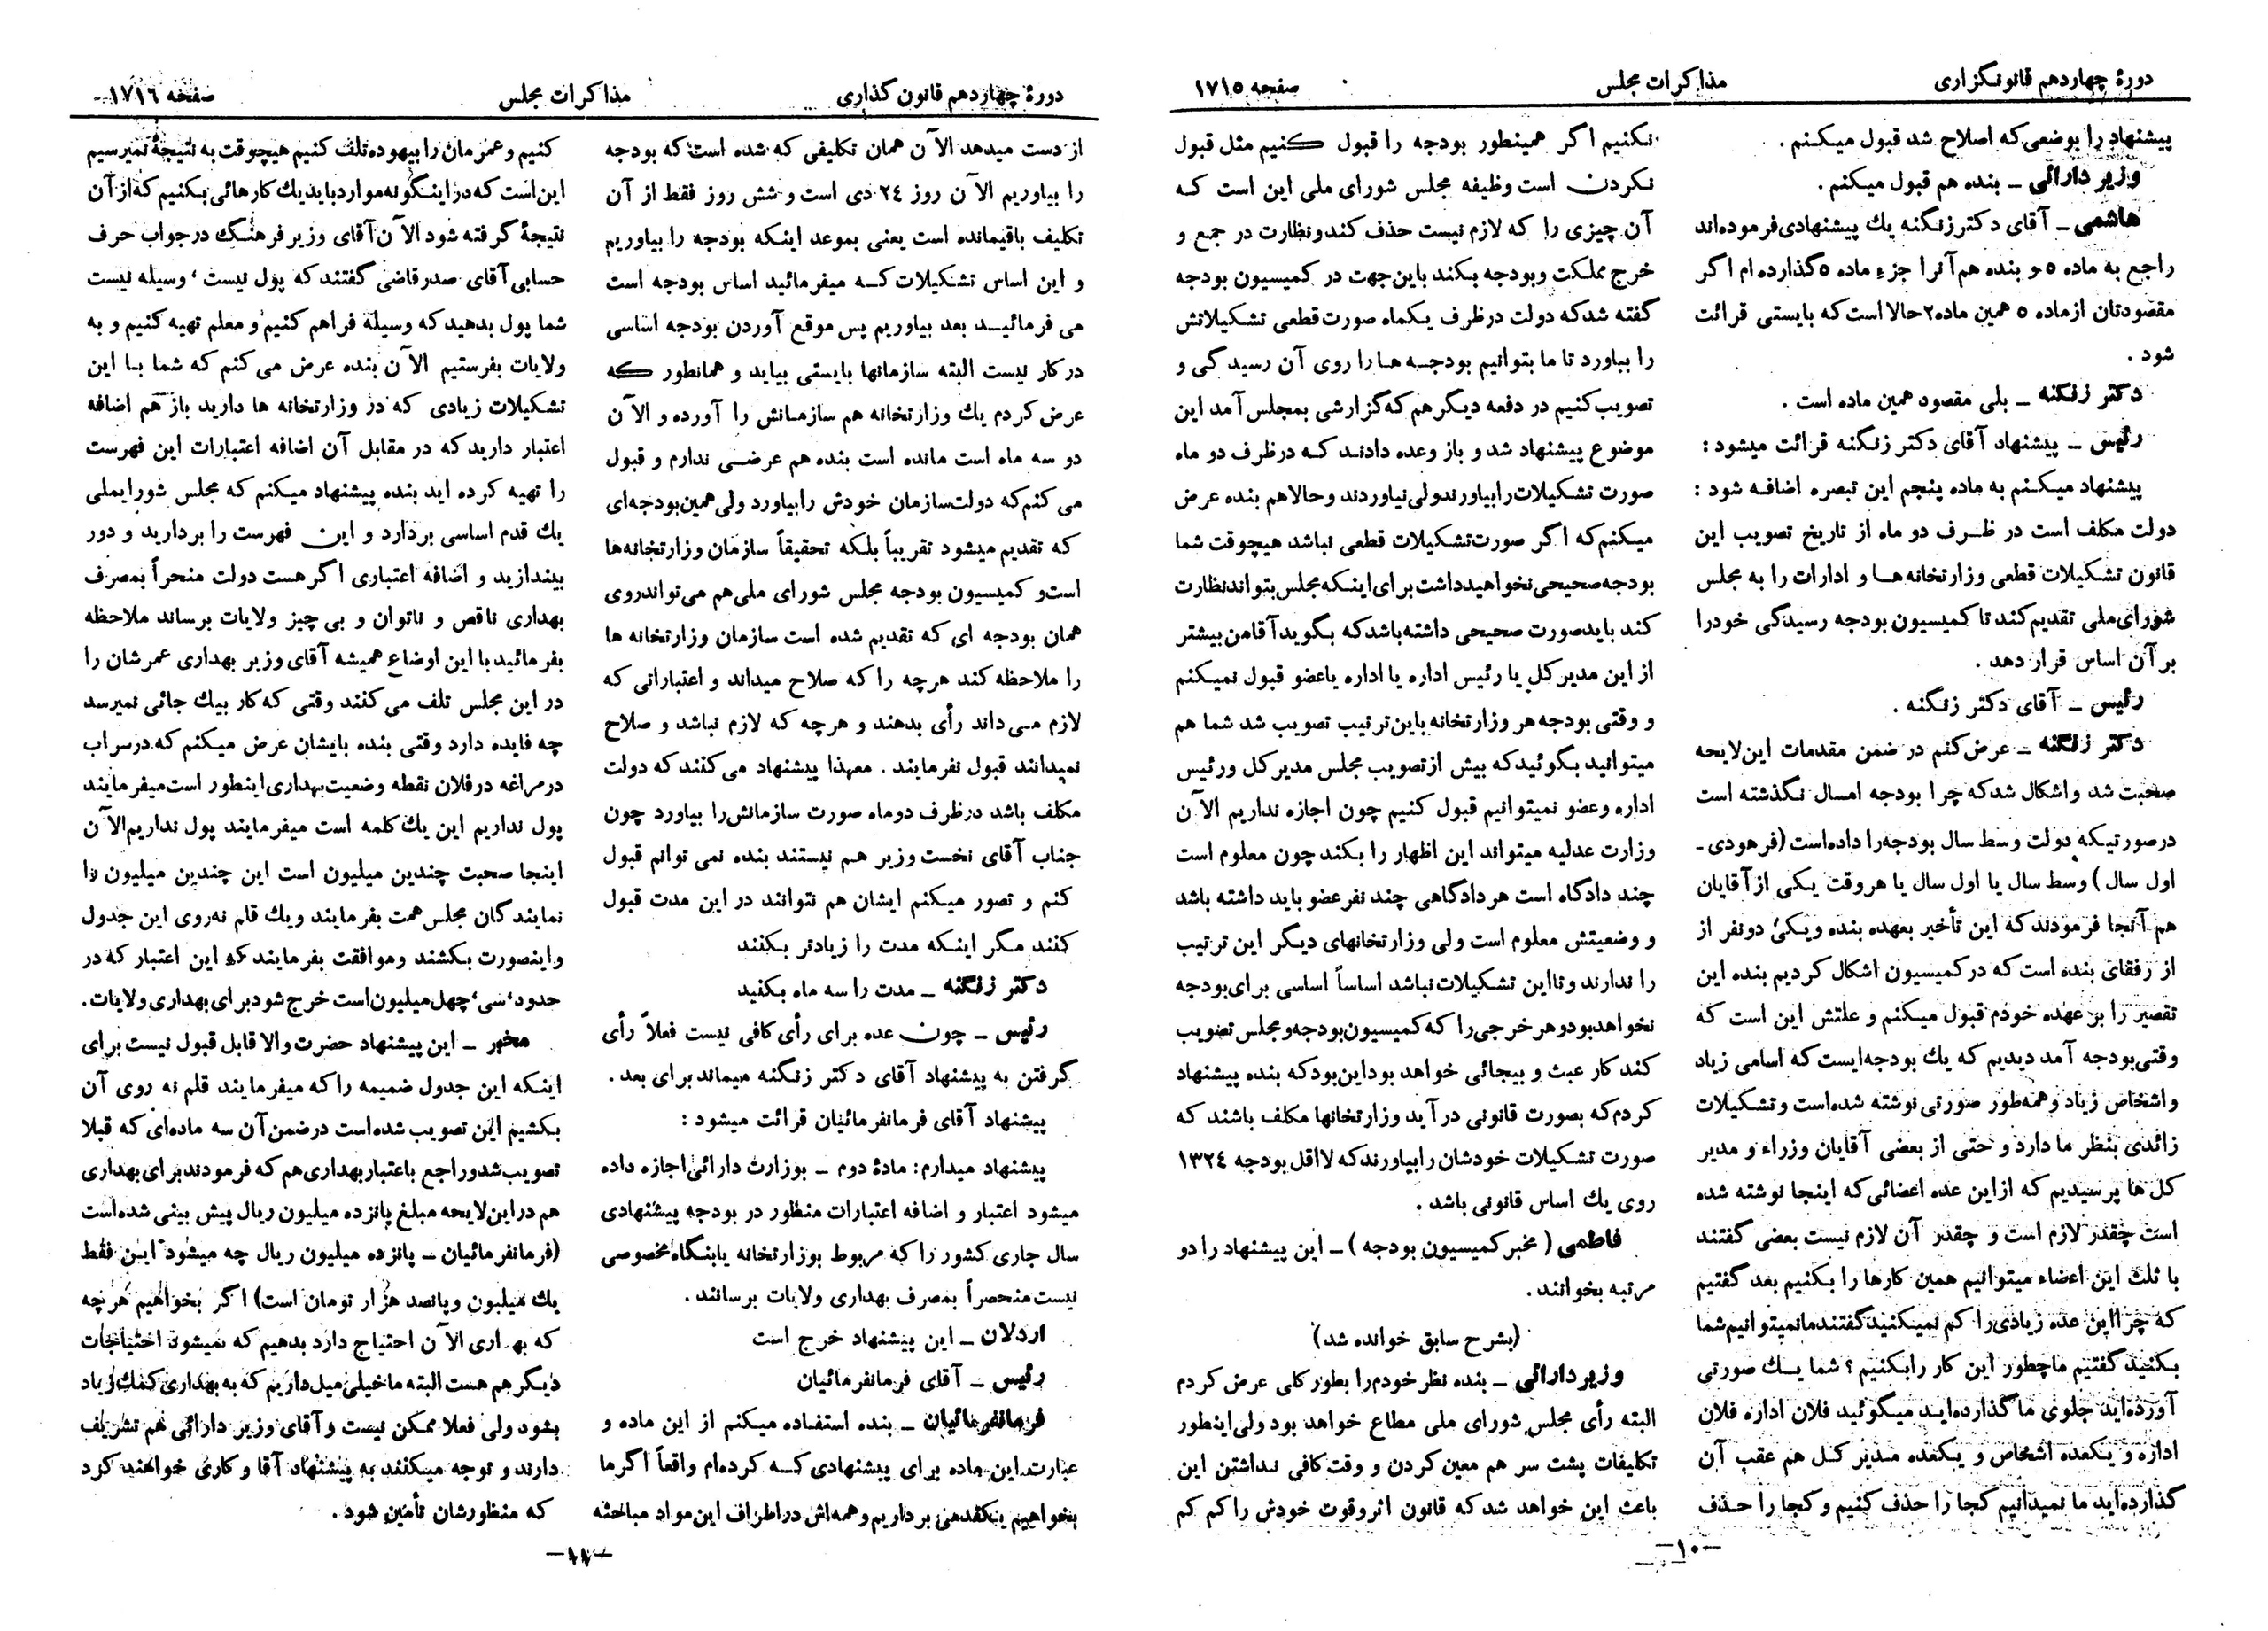 دورهٔ چهاردهم قانونگزاری
مذاکرات مجلس
صفحه ۱۷۱۵
پیشنهاد را بوضعی که اصلاح شد قبول میکنم .
وزیر دارائی ــ بنده هم قبول میکنم .
هاشمی ــ آقای دکتر زنگنه یك پیشنهادی فرموده‌اند
راجع به ماده ۵ و بنده هم آنرا جزء ماده ۵ گذارده ام اگر
مقصودتان از ماده ۵ همین ماده ۲ حالا است که بایستی قرائت
شود .
دکتر زنگنه ــ بلی مقصود همین ماده است .
رئیس ــ پیشنهاد آقای دکتر زنگنه قرائت میشود :
پیشنهاد میکنم به ماده پنجم این تبصره اضافه شود :
دولت مکلف است در ظرف دو ماه از تاریخ تصویب این
قانون تشکیلات قطعی وزارتخانه هـا و ادارات را به مجلس
شورای ملی تقدیم کند تا کمیسیون بودجه رسیدگی خود را
بر آن اساس قرار دهد .
رئیس ــ آقای دکتر زنگنه .
دکتر زنگنه ــ عرض کنم در ضمن مقدمات این لایحه
صحبت شد و اشکال شد که چرا بودجه امسال نگذشته است
درصورتیکه دولت وسط سال بودجه را داده است (فرهودی ــ
اول سال) وسط سال یا اول سال یا هر وقت یکی از آقایان
هم آنجا فرمودند که این تأخیر بعهده بنده و یکی دو نفر از
از رفقای بنده است که در کمیسیون اشکال کردیم بنده این
تقصیر را بر عهده خودم قبول میکنم و علتش این است که
وقتی بودجه آمد دیدیم که یك بودجه‌ایست که اسامی زیاد
و اشخاص زیاد و همه‌طور صورتی نوشته شده‌است و تشکیلات
زائدی بنظر ما دارد و حتی از بعضی آقایان وزراء و مدیر
کل ها پرسیدیم که از این عده اعضائی که اینجا نوشته شده
است چقدر لازم است و چقدر آن لازم نیست بعضی گفتند
با ثلث این اعضاء میتوانیم همین کارها را بکنیم بعد گفتیم
که چرا این عده زیادی را کم نمیکنید گفتند ما نمیتوانیم شما
بکنید گفتیم ما چطور این کار را بکنیم ؟ شما یـك صورتی
آورده‌اید جلوی ما گذارده‌اید میگوئید فلان اداره فلان
اداره و یکعده اشخاص و یکعده مدیر کـل هم عقب آن
گذارده‌اید ما نمیدانیم کجا را حذف کنیم و کجا را حـذف
نکنیم اگر همینطور بودجه را قبول کنیم مثل قبول
نکردن است وظیفه مجلس شورای ملی این است کـه
آن چیزی را که لازم نیست حذف کند و نظارت در جمع و
خرج مملکت و بودجه بکند باین جهت در کمیسیون بودجه
گفته شد که دولت در ظرف یکماه صورت قطعی تشکیلاتش
را بیاورد تا ما بتوانیم بودجـه هـا را روی آن رسیدگی و
تصویب کنیم در دفعه دیگر هم که گزارشی بمجلس آمد این
موضوع پیشنهاد شد و باز وعده دادنـد کـه در ظرف دو ماه
صورت تشکیلات را بیاورند ولی نیاوردند و حالا هم بنده عرض
میکنم که اگر صورت تشکیلات قطعی نباشد هیچوقت شما
بودجه صحیحی نخواهید داشت برای اینکه مجلس بتواند نظارت
کند باید صورت صحیحی داشته باشد که بگوید آقا من بیشتر
از این مدیر کل یا رئیس اداره یا اداره یا عضو قبول نمیکنم
و وقتی بودجه هر وزارتخانه باین ترتیب تصویب شد شما هم
میتوانید بگوئید که بیش از تصویب مجلس مدیر کل و رئیس
اداره و عضو نمیتوانیم قبول کنیم چون اجازه نداریم الآن
وزارت عدلیه میتواند این اظهار را بکند چون معلوم است
چند دادگاه است هر دادگاهی چند نفر عضو باید داشته باشد
و وضعیتش معلوم است ولی وزارتخانهای دیگر این ترتیب
را ندارند و تا این تشکیلات نباشد اساساً اساسی برای بودجه
نخواهد بود و هر خرجی را که کمیسیون بودجه و مجلس تصویب
کند کار عبث و بیجائی خواهد بود این بود که بنده پیشنهاد
کردم که بصورت قانونی در آید وزارتخانها مکلف باشند که
صورت تشکیلات خودشان را بیاورند که لااقل بودجه ۱۳۲٤
روی یك اساس قانونی باشد .
فاطمی ( مخبر کمیسیون بودجه ) ــ این پیشنهاد را دو
مرتبه بخوانند .
(بشرح سابق خوانده شد)
وزیر دارائی ــ بنده نظر خودم را بطور کلی عرض کردم
البته رأی مجلس شورای ملی مطاع خواهد بود ولی اینطور
تکلیفات پشت سر هم معین کردن و وقت کافی نـداشتن این
باعث این خواهد شد که قانون اثر و قوت خودش را کم کم
ــ۱۰ــ
دورهٔ چهاردهم قانون گذاری
مذاکرات مجلس
صفحه ۱۷۱٦
از دست میدهد الآن همان تکلیفی که شده است که بودجه
را بیاوریم الآن روز ۲٤ دی است و شش روز فقط از آن
تکلیف باقیمانده است یعنی بموعد اینکه بودجه را بیاوریم
و این اساس تشکیلات کـه میفرمائید اساس بودجه است
می فرمائیـد بعد بیاوریم پس موقع آوردن بودجه اساسی
در کار نیست البته سازمانها بایستی بیاید و همانطور که
عرض کردم یك وزارتخانه هم سازمـانش را آورده و الآن
دو سه ماه است مانده است بنده هم عرضـی ندارم و قبول
می کنم که دولت سازمان خودش را بیاورد ولی همین بودجه‌ای
که تقدیم میشود تقریباً بلکه تحقیقاً سازمان وزارتخانه‌ها
است و کمیسیون بودجه مجلس شورای ملی هم می تواند روی
همان بودجه ای که تقدیم شده است سازمان وزارتخانه ها
را ملاحظه کند هرچه را که صلاح میداند و اعتباراتی که
لازم مـی داند رأی بدهند و هرچه که لازم نباشد و صلاح
نمیدانند قبول نفرمایند . معهذا پیشنهاد می کنند که دولت
مکلف باشد در ظرف دو ماه صورت سازمانش را بیاورد چون
جناب آقای نخست وزیر هـم نیستند بنده نمی توانم قبول
کنم و تصور میکنم ایشان هم نتوانند در این مدت قبول
کنند مگر اینکه مدت را زیادتر بکنند
دکتر زنگنه ــ مدت را سه ماه بکنید
رئیس ــ چون عده برای رأی کافی نیست فعلاً رأی
گرفتن به پیشنهاد آقای دکتر زنگنه میماند برای بعد .
پیشنهاد آقای فرمانفرمائیان قرائت میشود :
پیشنهاد میدارم: مادهٔ دوم ــ بوزارت دارائی اجازه داده
میشود اعتبار و اضافه اعتبارات منظور در بودجه پیشنهادی
سال جاری کشور را که مربوط بوزارتخانه یا بنگاه مخصوصی
نیست منحصراً بمصرف بهداری ولایات برسانند .
اردلان ــ این پیشنهاد خرج است
رئیس ــ آقای فرمانفرمائیان
فرمانفرمائیان ــ بنده استفاده میکنم از این ماده و
عبارت این ماده برای پیشنهادی کـه کرده‌ام واقعاً اگر ما
بخواهیم یکقدمی برداریم و همه‌اش در اطراف این مواد مباحثه
کنیم و عمرمان را بیهوده تلف کنیم هیچوقت به نتیجهٔ نمیرسیم
این است که در اینگونه موارد باید یك کارهائی بکنیم که از آن
نتیجهٔ گرفته شود الآن آقای وزیر فرهنگ در جواب حرف
حسابی آقای صدر قاضی گفتند که پول نیست ، وسیله نیست
شما پول بدهید که وسیله فراهم کنیم و معلم تهیه کنیم و به
ولایات بفرستیم الآن بنده عرض می کنم که شما بـا این
تشکیلات زیادی که در وزارتخانه ها دارید باز هم اضافه
اعتبار دارید که در مقابل آن اضافه اعتبارات این فهرست
را تهیه کرده اید بنده پیشنهاد میکنم که مجلس شورایملی
یك قدم اساسی بردارد و این فهرست را بردارید و دور
بیندازید و اضافه اعتباری اگر هست دولت منحراً بمصرف
بهداری ناقص و ناتوان و بی چیز ولایات برساند ملاحظه
بفرمائید با این اوضاع همیشه آقای وزیر بهداری عمرشان را
در این مجلس تلف می کنند وقتی که کار بیك جائی نمیرسد
چه فایده دارد وقتی بنده بایشان عرض میکنم که در سراب
در مراغه در فلان نقطه وضعیت بهداری اینطور است میفرمایند
پول نداریم این یك کلمه است میفرمایند پول نداریم الآن
اینجا صحبت چندین میلیون است این چندین میلیون را
نمایندگان مجلس همت بفرمایند و یك قلم نه روی این جدول
و اینصورت بکشند و موافقت بفرمایند که این اعتبار که در
حدود ، سی، چهل میلیون است خرج شود برای بهداری ولایات.
مخبر ــ این پیشنهاد حضرت والا قابل قبول نیست برای
اینکه این جدول ضمیمه را که میفرمایند قلم نه روی آن
بکشیم این تصویب شده است در ضمن آن سه ماده‌ای که قبلا
تصویب شد و راجع با عتبار بهداری هم که فرمودند برای بهداری
هم در این لایحه مبلغ پانزده میلیون ریال پیش بینی شده است
(فرمانفرمائیان ــ پانزده میلیون ریال چه میشود این فقط
یك میلیون و پانصد هزار تومان است) اگر بخواهیم هرچه
که بهداری الآن احتیاج دارد بدهیم که نمیشود احتیاجات
دیگر هم هست البته ما خیلی میل داریم که به بهداری کمك زیاد
بشود ولی فعلا ممکن نیست و آقای وزیر دارائی هم تشریف
دارند و توجه میکنند به پیشنهاد آقا و کاری خواهند کرد
که منظورشان تأمین شود .
ــ۱۱ــ